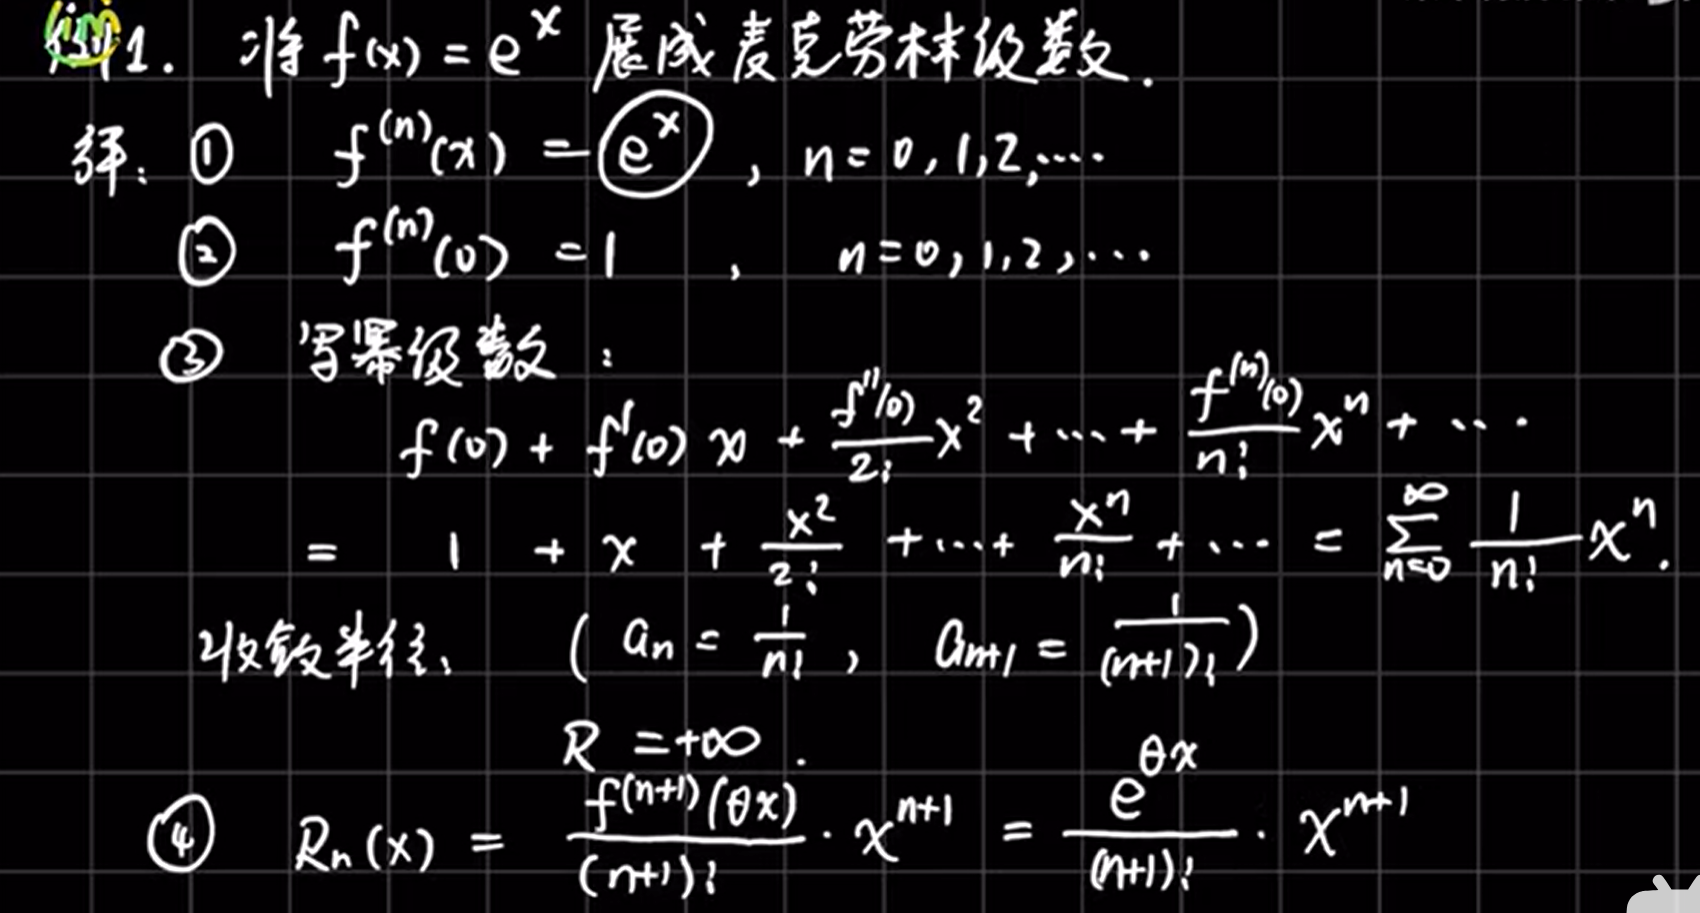 例1. 将 f(x) = e^x 展成麦克劳林级数.
解: ① f^(n)(x) = e^x , n = 0, 1, 2, ....
② f^(n)(0) = 1 , n = 0, 1, 2, ...
③ 写幂级数:
f(0) + f'(0) x + f''(0)/2! x^2 + ... + f^(n)(0)/n! x^n + ...
= 1 + x + x^2/2! + ... + x^n/n! + ... = ∑_{n=0}^{∞} 1/n! x^n.
收敛半径: ( a_n = 1/n! , a_{n+1} = 1/(n+1)! )
R = +∞ .
④ R_n(x) = f^(n+1)(θx)/(n+1)! · x^{n+1} = e^{θx}/(n+1)! · x^{n+1}